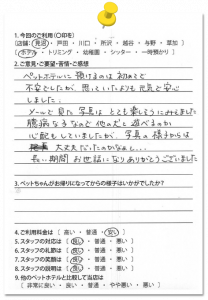 1.今回のご利用(〇印を)
(店舗:[見沼・戸田・川口・所沢・越谷・与野・草加]
(ホテル・トリミング・幼稚園・シッター・一時預かり)
2.ご意見・ご要望・苦情・ご感想
ペットホテルに預けるのは初めてで
不安でしたが、思っていたよりも元気と安心
しました。
メールで見た写真はとても楽しそうにみえました
臆病な子なので他の犬と遊べるのか
心配もしていましたが、写真の様子からは
大丈夫だったのかなぁと…。
長い期間お世話になりありがとうございました
3.ペットちゃんがお帰りになってからの様子はいかがでしたか?
4.ご利用料金は(高い・普通・安い)
5.スタッフの対応は(良い・普通・悪い)
6.スタッフの礼節は(良い・普通・悪い)
7.スタッフの笑顔は(良い・普通・悪い)
8.スタッフの説明は(良い・普通・悪い)
9.他のペットホテルと比較して当店は
(非常に良い・良い・普通・やや悪い・悪い)